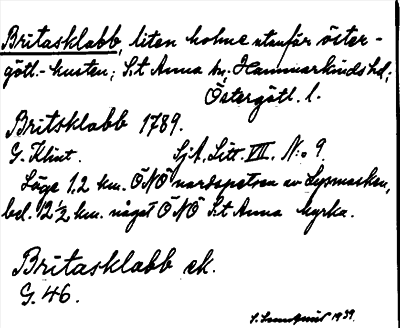 Britasklabb, liten holme utanför öster-
götl.-kusten; S:t Anna sn, Hammarkinds hd,
Östergötl. l.
Britsklabb 1789.
G. Klint. SjA, Litt. VII. N:o 9.
Läge 1,2 km. ÖNÖ nordspetsen av Lysmasken,
bel. 12 1/2 km. något ÖNÖ S:t Anna kyrka.
Britasklabb ek.
G. 46.
1939